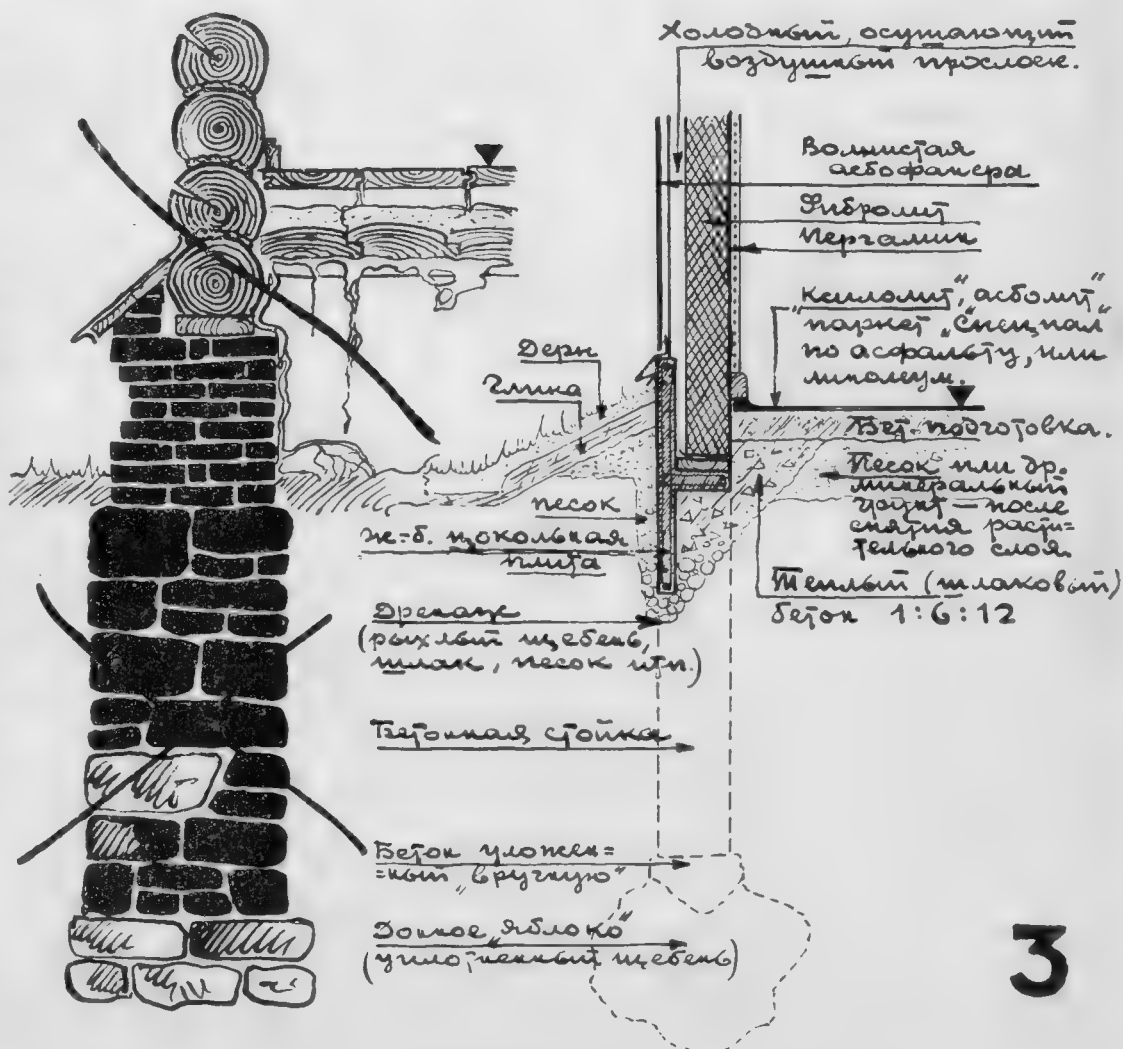 Холодный, осушающий
воздушный прослоек.
Волнистая
асбофанера
Фибролит
Пергамин
„Ксилолит", „асболит"
паркет „Специал"
по асфальту, или
линолеум.
Дерн
Глина
Бет. подготовка.
Песок или др.
минеральный
грунт — после
снятия расти=
тельного слоя.
песок
ж=б. цокольная
плита
Теплый (шлаковый)
бетон 1:6:12
Дренаж
(рыхлый щебень,
шлак, песок итп.)
Бетонная стойка
Бетон уложен=
=ный „вручную"
Донное яблоко"
(уплотненный щебень)
3